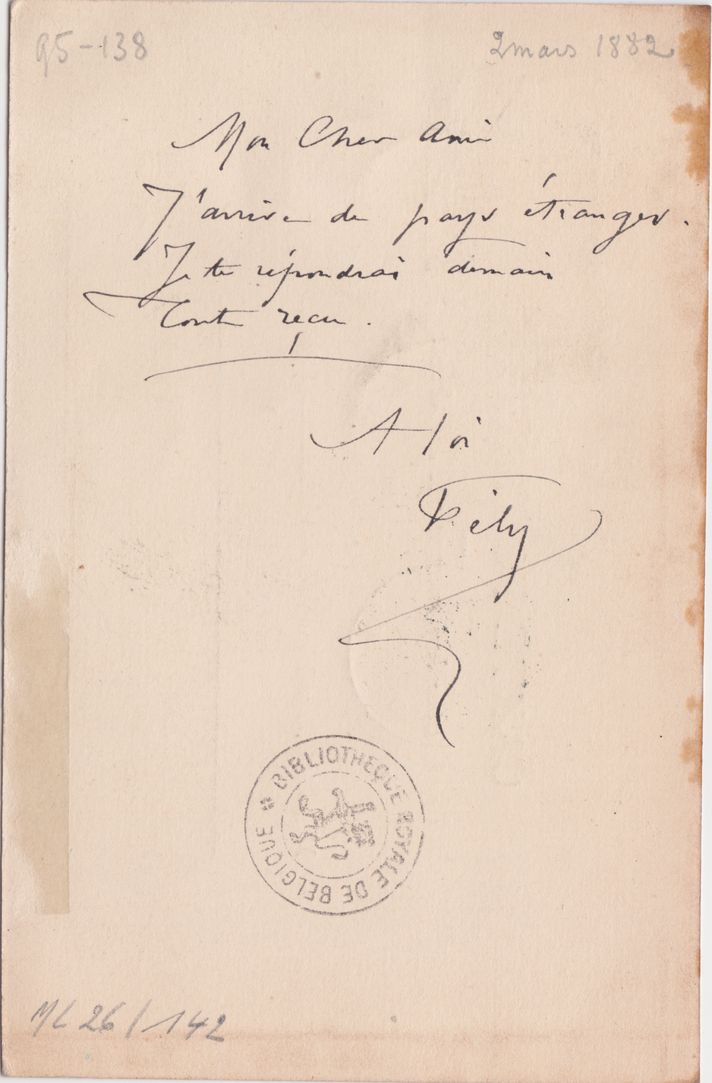 95-138
2 mars 1882
Mon Cher Ami
J'arrive de pays étranger.
Je te répondrai demain
Tout reçu.
A toi
Fély
BIBLIOTHEQUE ROYALE DE BELGIQUE
ML 26/142